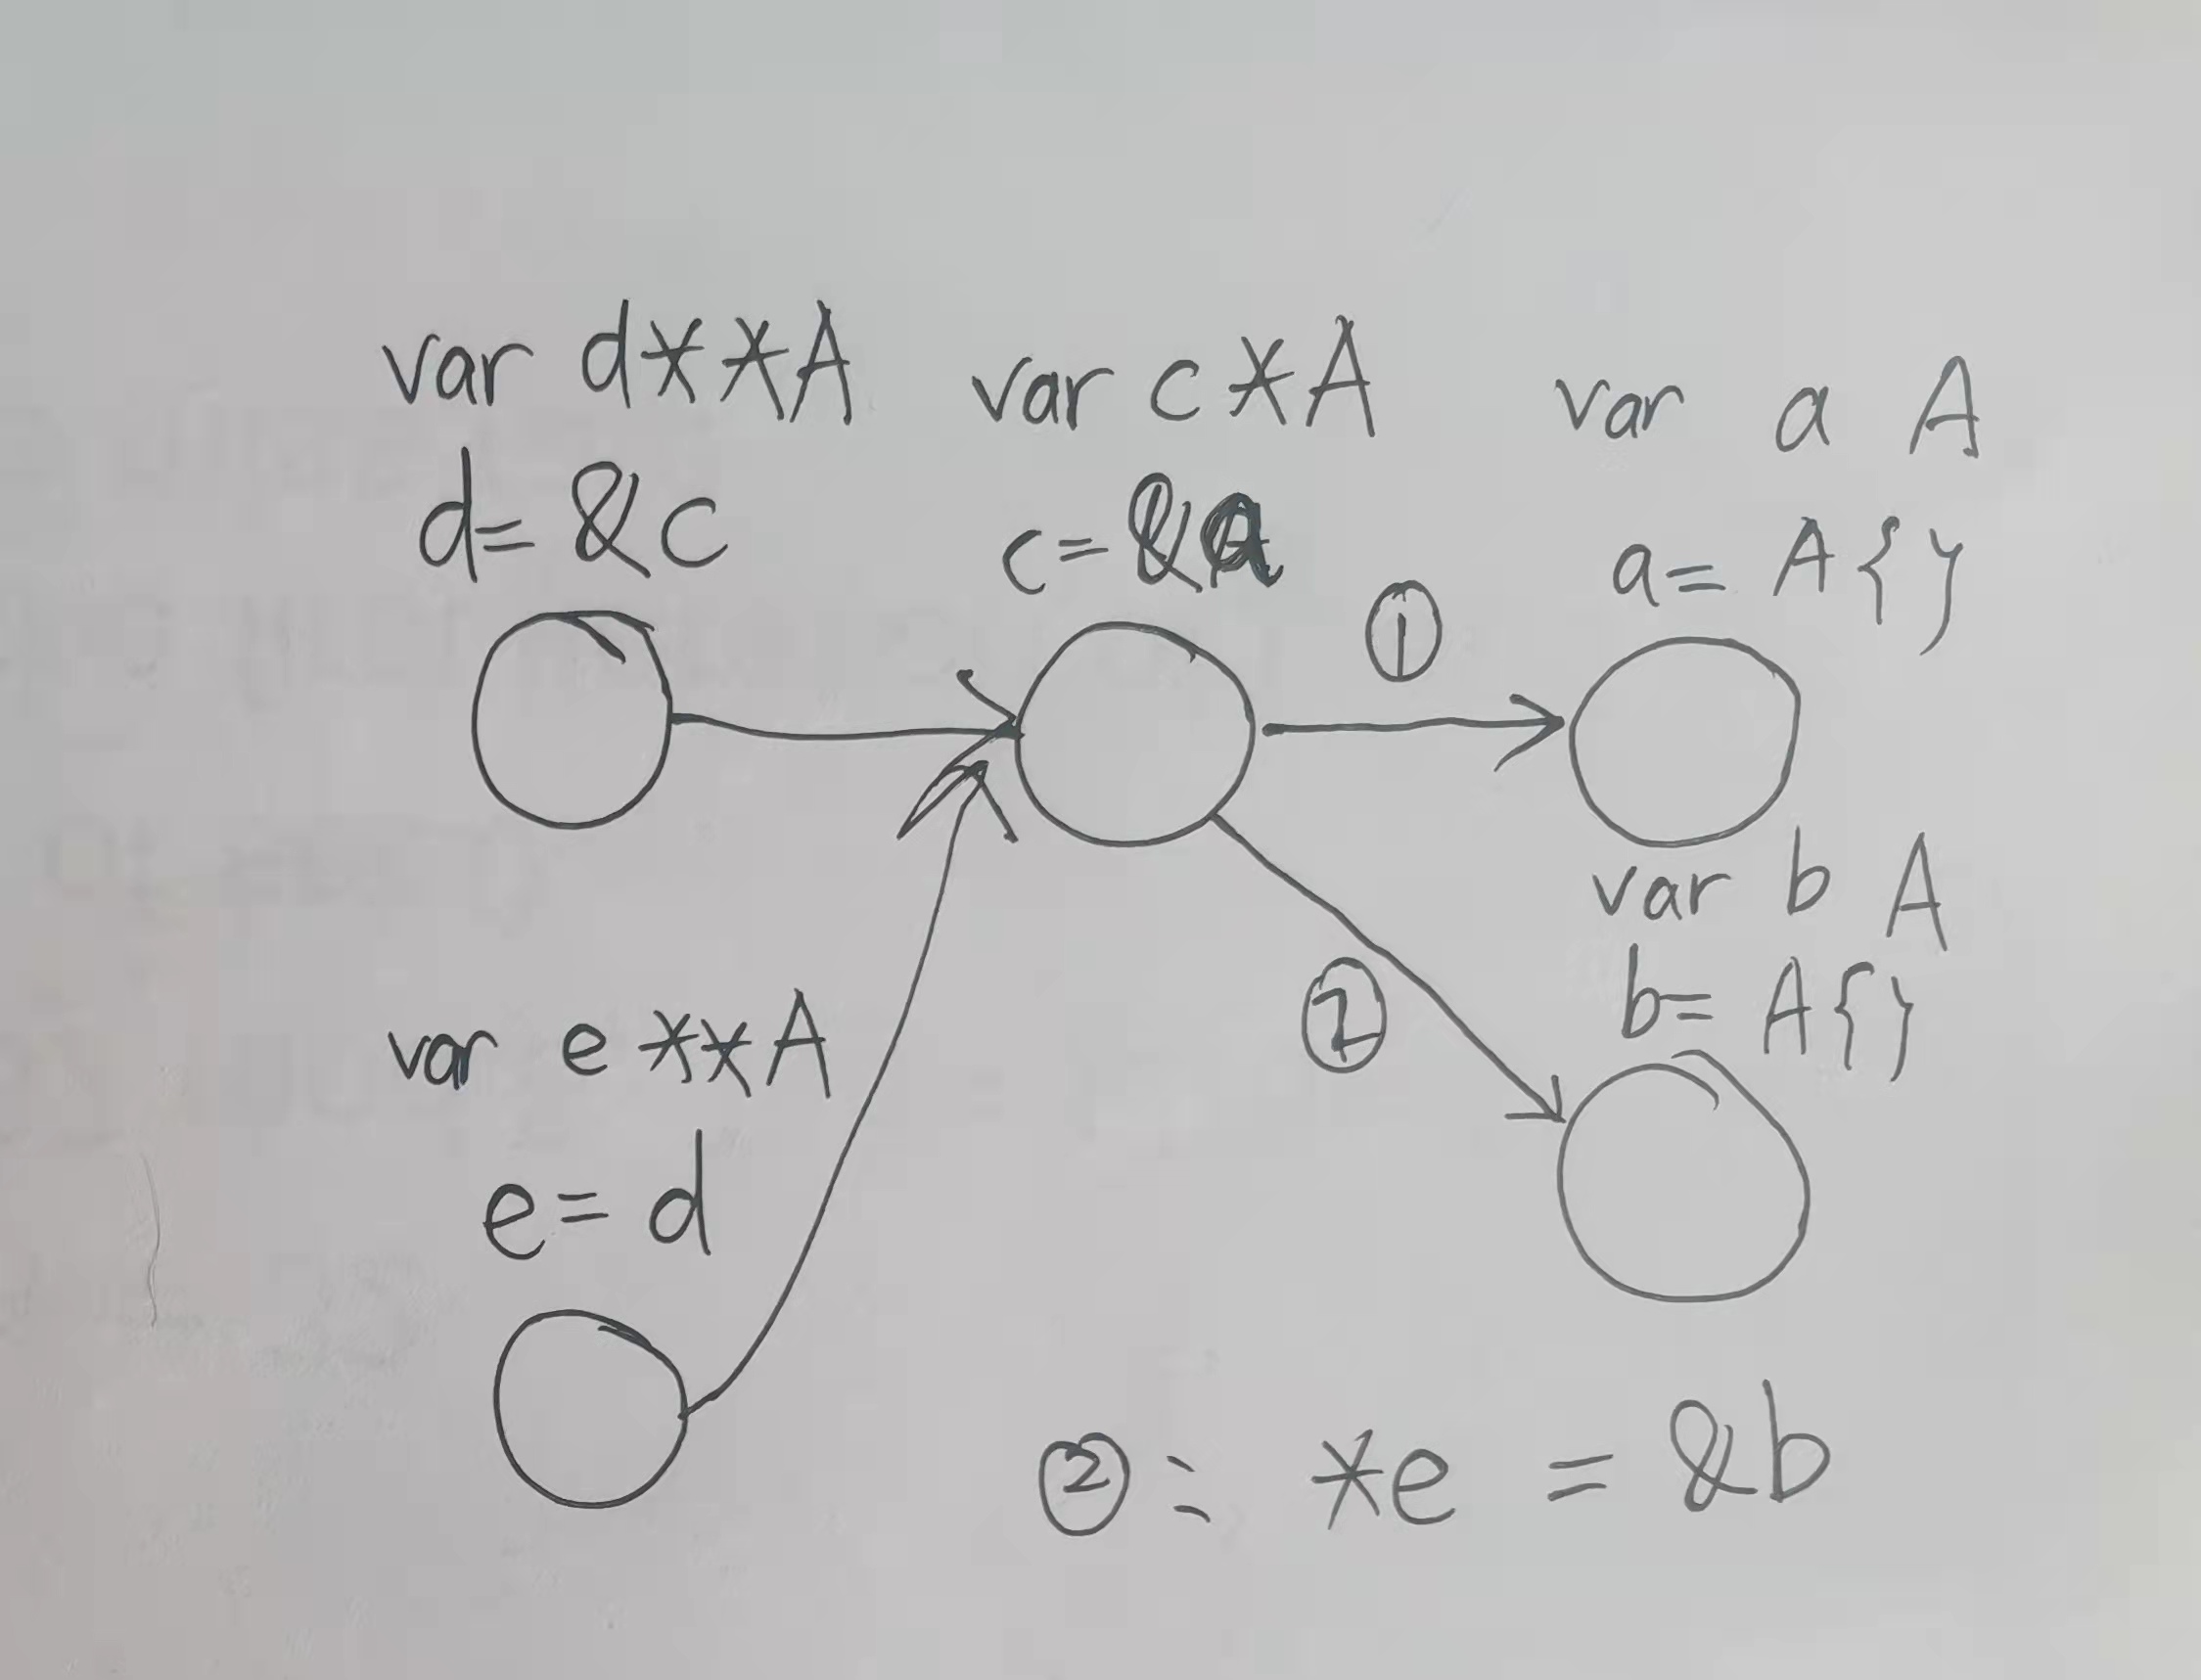 var d**A
d= &c
var c*A
c=&a
var a A
a= A{}
①
var b A
b= A{}
②
var e **A
e= d
②: *e = &b